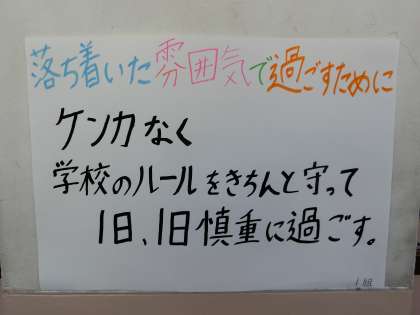 落ち着いた雰囲気で過ごすために
ケンカなく
学校のルールをきちんと守って
1日、1日慎重に過ごす。
1組